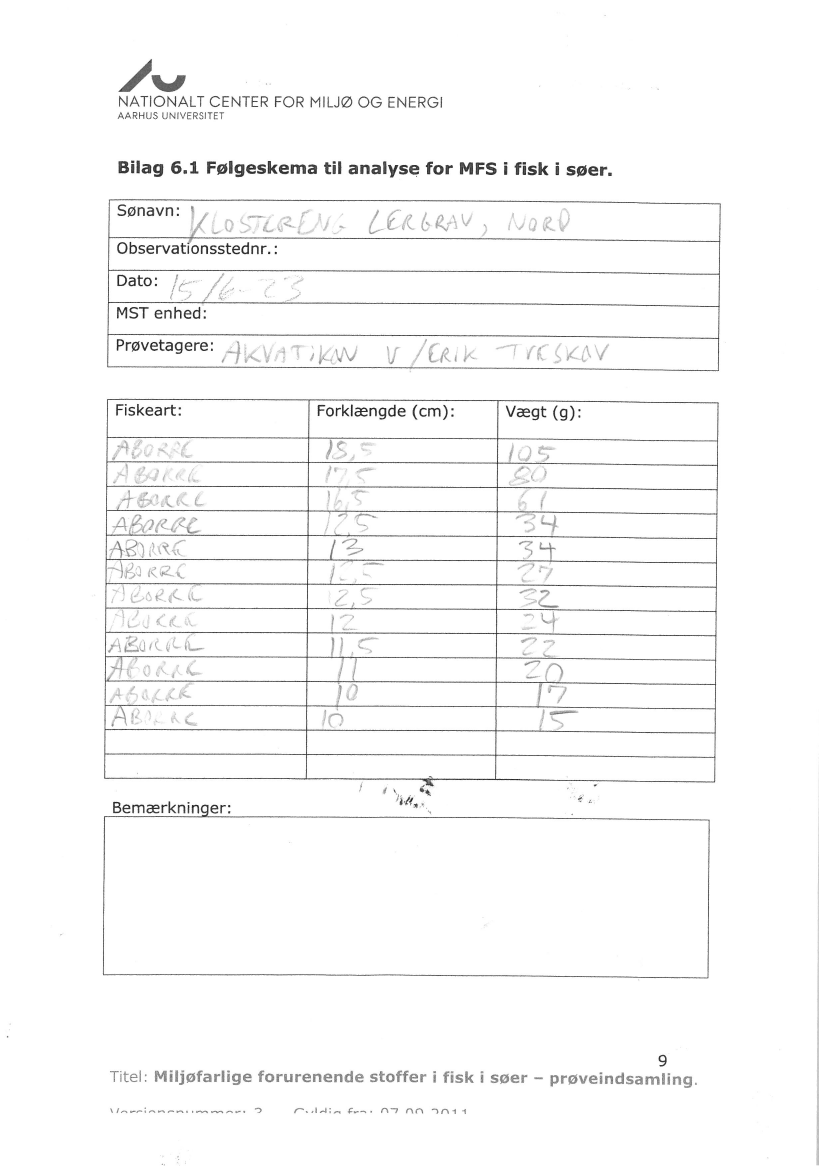 NATIONALT CENTER FOR MILJØ OG ENERGI
AARHUS UNIVERSITET
Bilag 6.1 Følgeskema til analyse for MFS i fisk i søer.
Sønavn: KLOSTERENG LERGRAV, NORD
Observationsstednr.:
Dato: 15/6-23
MST enhed:
Prøvetagere: AKVATIKON V/ERIK TVESKOV
Fiskeart: Forklængde (cm): Vægt (g):
ABORRE 18,5 105
ABORRE 17,5 80
ABORRE 16,5 61
ABORRE 12,5 34
ABORRE 13 34
ABORRE 27
ABORRE 12,5 32
ABORRE 12 24
ABORRE 11,5 22
ABORRE 11 20
ABORRE 10 17
ABORRE 10 15
Bemærkninger:
9
Titel: Miljøfarlige forurenende stoffer i fisk i søer – prøveindsamling.